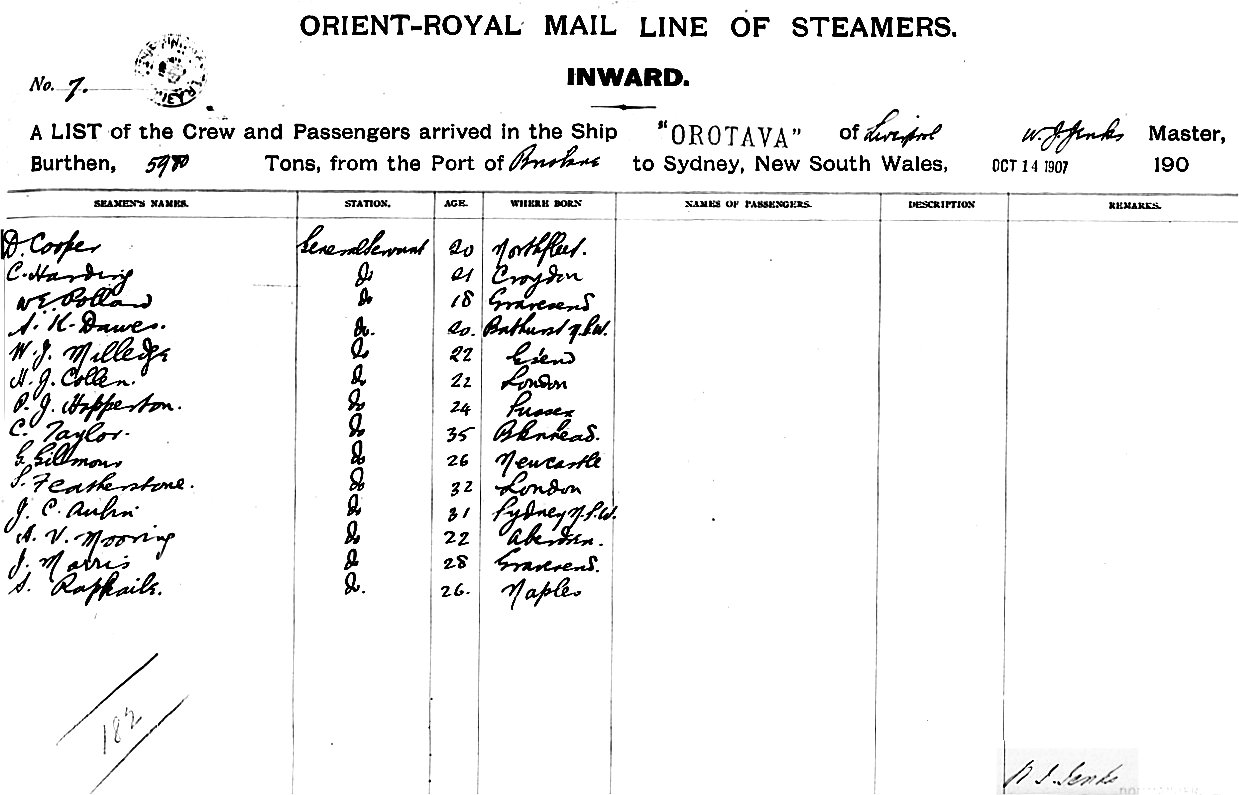 ORIENT-ROYAL MAIL LINE OF STEAMERS.
No. 7.
INWARD.
A LIST of the Crew and Passengers arrived in the Ship "OROTAVA" of Liverpool W. J. Jenks Master,
Burthen, Tons, from the Port of Brisbane to Sydney, New South Wales, OCT 14 1907 190
SEAMEN'S NAMES. STATION. AGE. WHERE BORN NAMES OF PASSENGERS. DESCRIPTION REMARKS.
D. Cooper General Servant 20 Northfleet.
C. Harding Do 21 Croydon
W E Pollard Do 18 Gravesend
A. K. Dawes. Do. 20. Bathurst N.S.W.
W. J. Milledge Do 22
H. J. Collen. Do 22 London
P. J. Hopperton. Do 24 Sussex
C. Taylor. Do 35 B'kenhead.
G. Gilmour Do 26 Newcastle
S. Featherstone. Do 32 London
J. C. Aubin Do 31 Sydney N.S.W.
A. V. Mooring Do 22 Aberdeen.
J. Morris Do 28 Gravesend.
S. Raphaile. Do. 26. Naples
182
Jenks